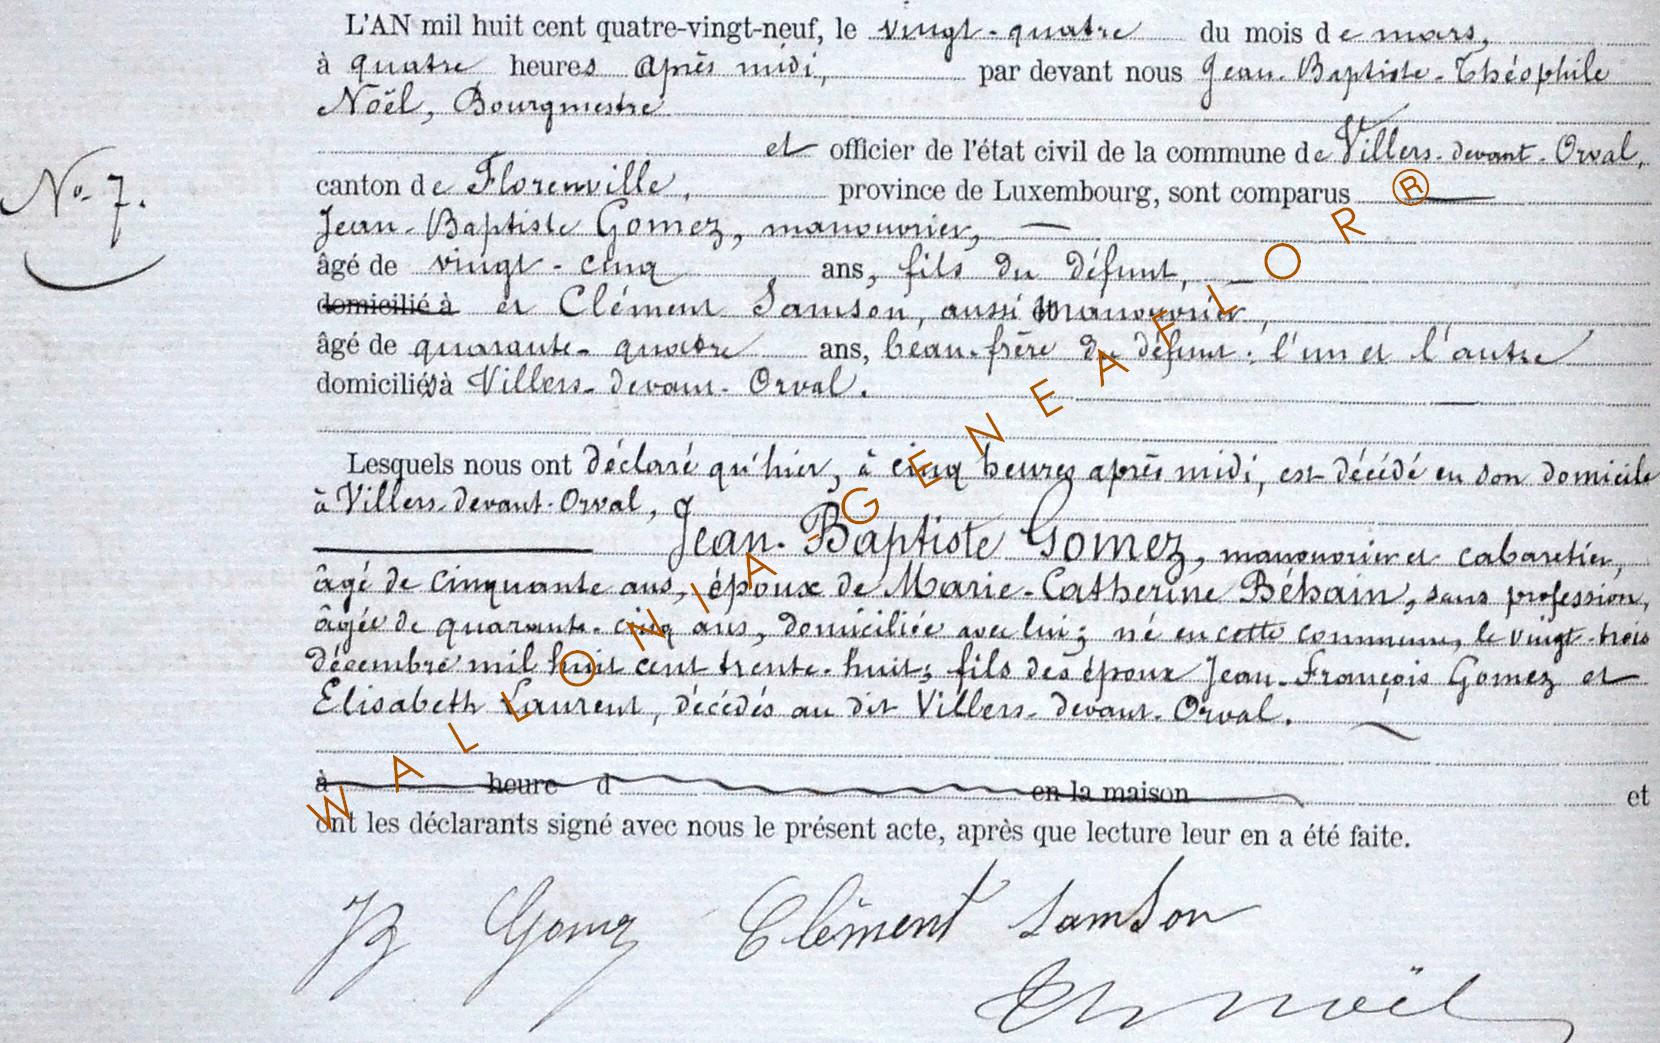 L'AN mil huit cent quatre-vingt-neuf, le vingt-quatre du mois de mars,
à quatre heures après midi, par devant nous Jean-Baptiste-Théophile
Noël, Bourgmestre
et officier de l'état civil de la commune de Villers-devant-Orval,
No. 7.
canton de Florenville, province de Luxembourg, sont comparus
Jean-Baptiste Gomez, manouvrier,
âgé de vingt-cinq ans, fils du défunt,
domicilié à et Clément Samson, aussi manouvrier,
âgé de quarante-quatre ans, beau-frère du défunt; l'un et l'autre
domiciliés à Villers-devant-Orval.
Lesquels nous ont déclaré qu'hier, à cinq heures après midi, est décédé en son domicile
à Villers-devant-Orval,
Jean-Baptiste Gomez, manouvrier et cabaretier,
âgé de cinquante ans, époux de Marie-Catherine Béhain, sans profession,
âgée de quarante-cinq ans, domiciliée avec lui; né en cette commune, le vingt-trois
décembre mil huit cent trente-huit; fils des époux Jean-François Gomez et
Elisabeth Laurent, décédés au dit Villers-devant-Orval.
à heure d en la maison et
ont les déclarants signé avec nous le présent acte, après que lecture leur en a été faite.
JB Gomez Clément Samson
Th Noël
WALLONIA-GENEAFLOR®